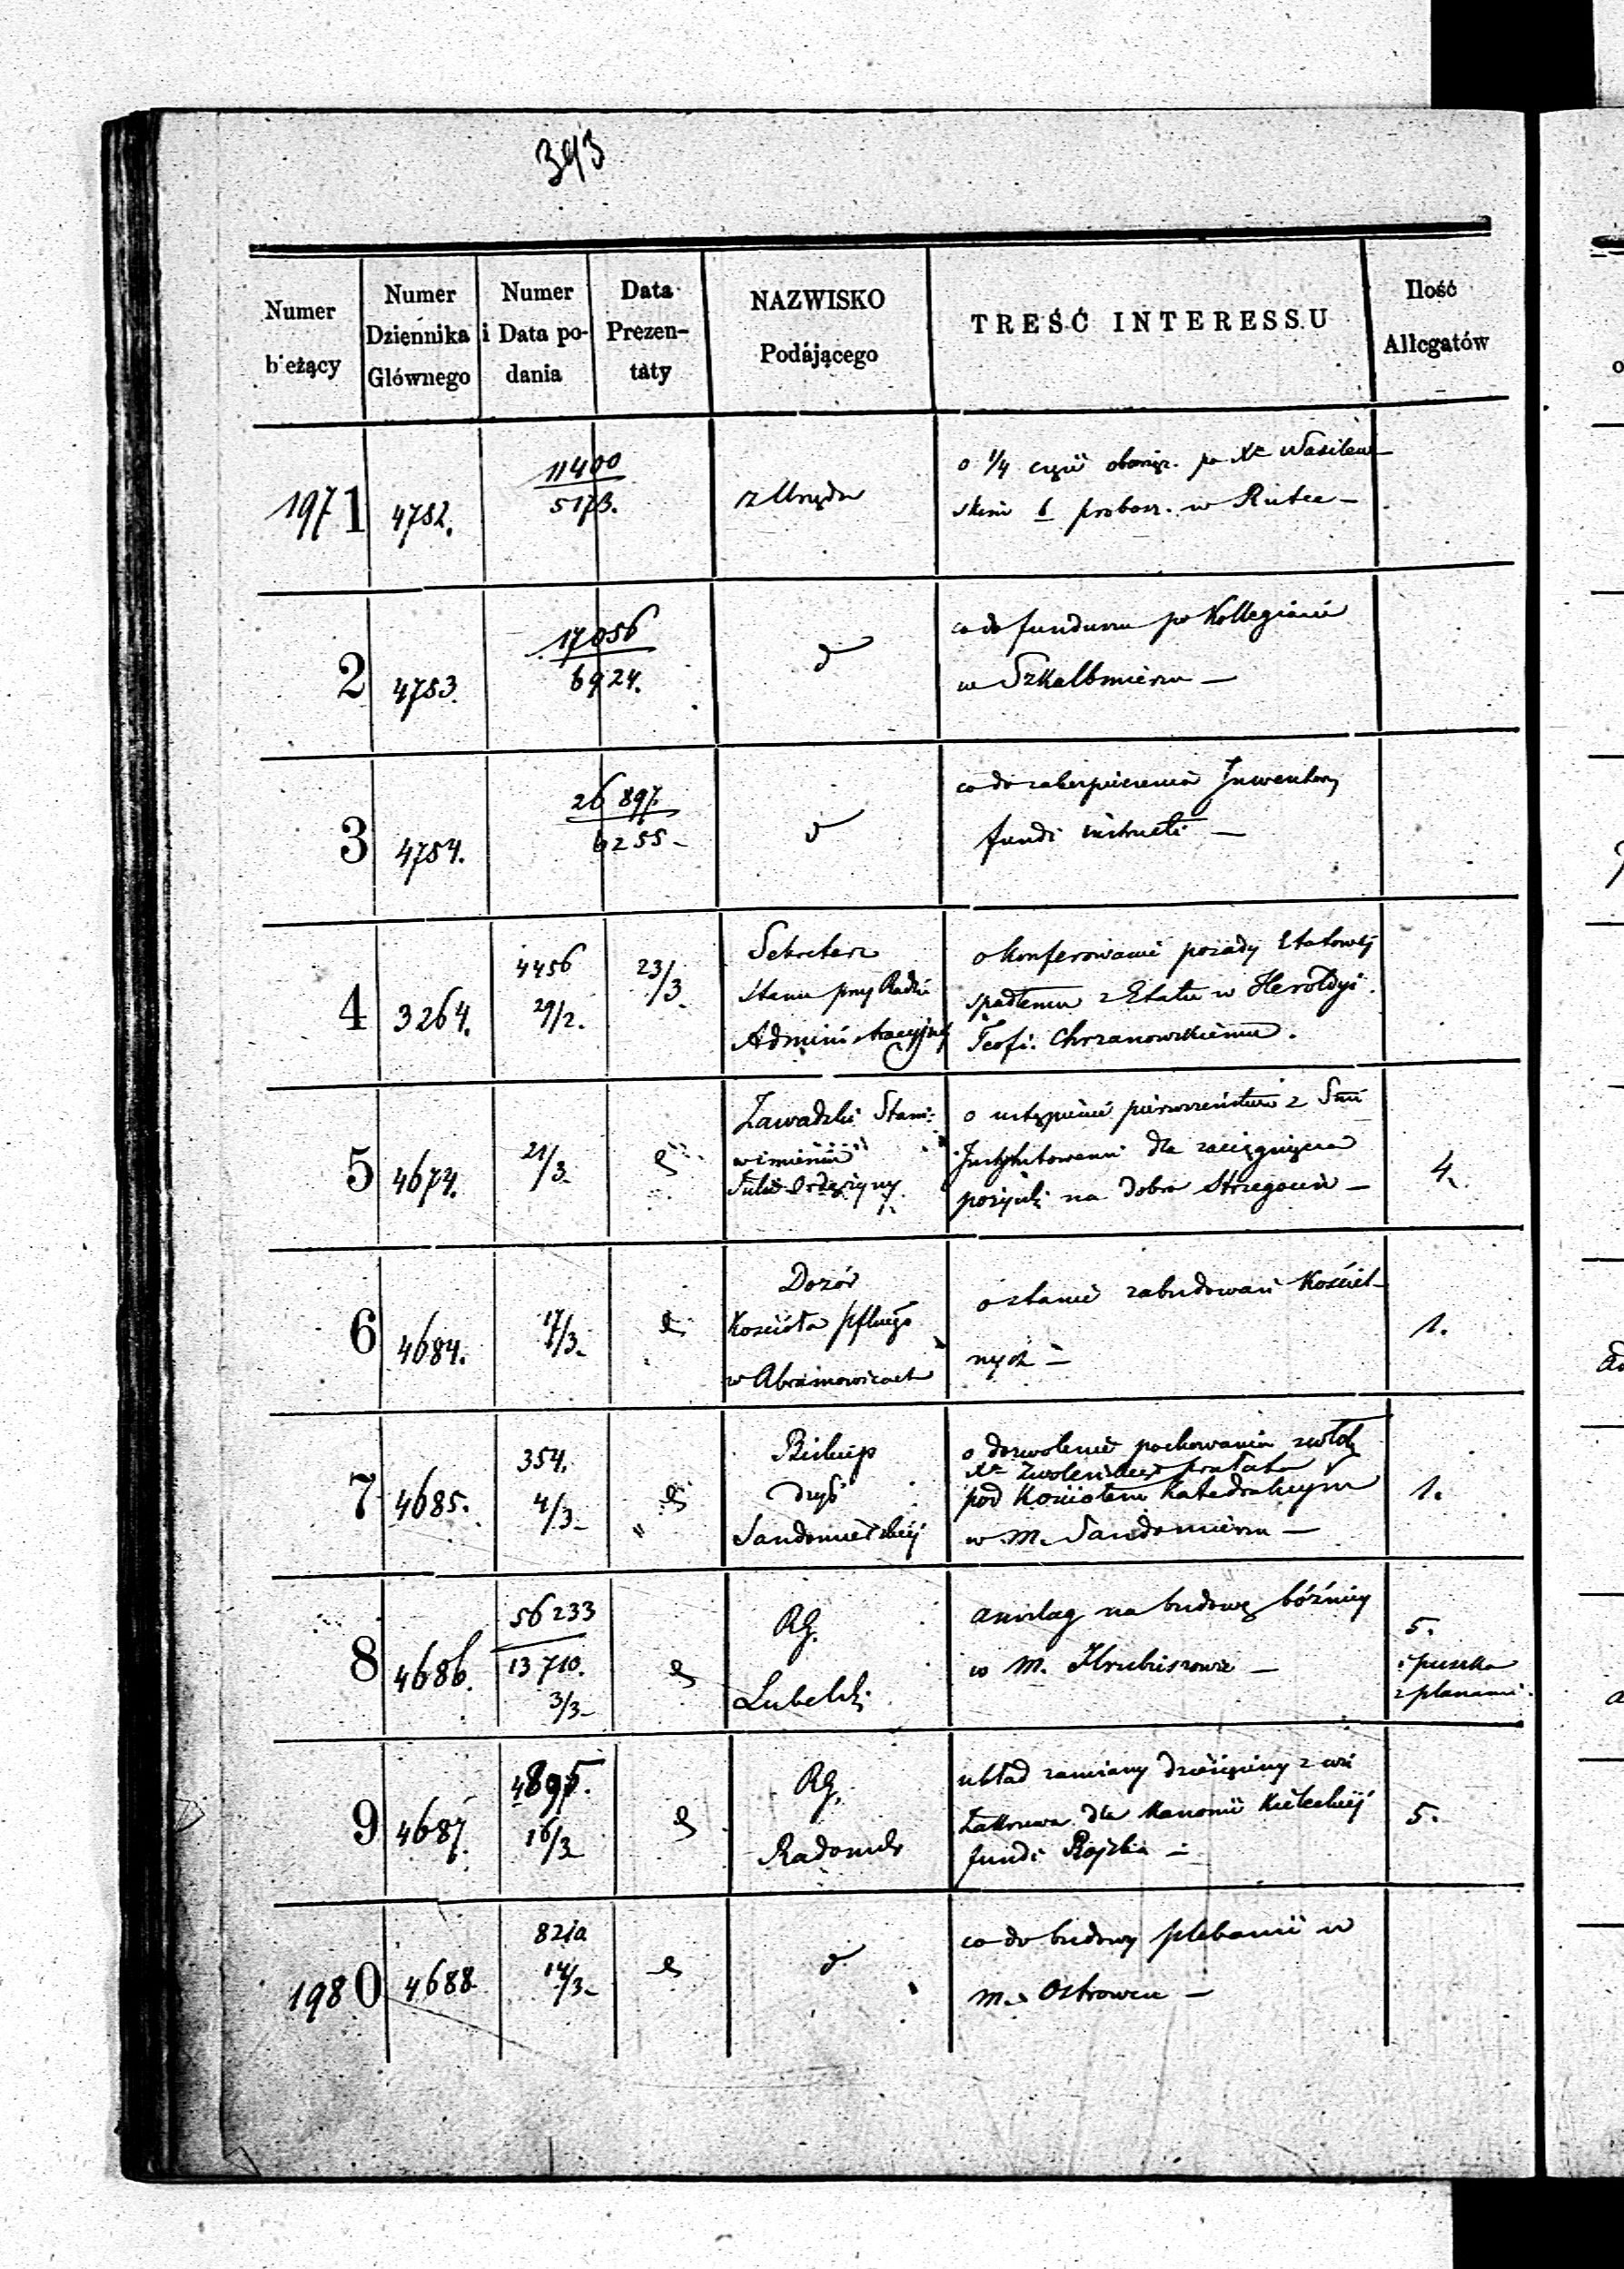 393
Numer bieżący
Numer Dziennika Głównego
Numer i Data podania
Data Prezentaty
NAZWISKO Podającego
TREŚĆ INTERESSU
Ilość Allegatów
1971 4752. 11400 / 5173. z Urzędu
o 1/4 części obowiąz. po Xe Wasilew
skim b proboz. w Rutce —
2 4753. 17056 / 6924. d
co do funduszu po Kollegiacie
w Szkalbmierzu —
3 4754. 26897. / 6255 – d
co do zabezpieczenia Inwentarz
fundi instructi —
4 3264. 4456 29/2. 23/3
Sekretarz
Stanu przy Radzie
Administracyjnej
o konferowanie posady Etatowej
spadłemu z Etatu w Heroldyi
Teofi. Chrzanowskiemu.
5 4674. 21/3
Zawadzki Stani:
w imieniu
Julii
o ustąpienie pierwszeństwa z
Instytutowemi dla zaciągnięcia
pożyczki na dobra Strzegocin —
4.
6 4684. 17/3
Dozór
Kościoła
w Abramowicach
o stanie zabudowań Kościel
nych —
1.
7 4685. 354. 4/3
Biskup
Dyec
Sandomierskiej
o dozwolenie pochowania zwłok
Xa Zwoleńskiego prałata
pod Kościołem Katedralnym
w M. Sandomierzu —
1.
8 4686. 56233 / 13710. 3/3
RG.
Lubelski
anszlag na budowę bóźnicy
w M. Hrubieszowie —
5.
i puszka
z planami.
9 4687. 4895. 16/3
RG.
Radomski
układ zamiany dziesięciny z wsi
dla Kanonii Kieleckiej
fundi —
5.
1980 4688 14/3 d
co do budowy plebanii w
m. Ostrowcu —